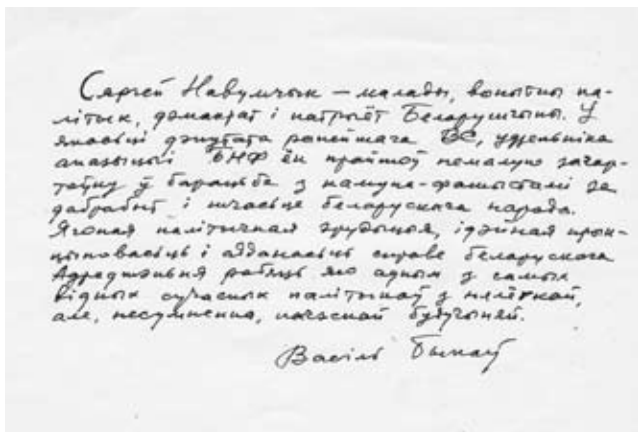 Сяргей Навумчык – малады, вопытны па-
літык, дэмакрат і патрыёт Беларушчыны. У
якасьці дэпутата ранейшага ВС, удзельніка
апазыцыі БНФ ён прайшоў немалую загар-
тоўку ў барацьбе з камуна-фашыстамі за
дабрабыт і шчасьце беларускага народа.
Ягоная палітычная эрудыцыя, ідэйная прын-
цыповасьць і адданасьць справе беларускага
Адраджэньня робяць яго адным з самых
відных сучасных палітыкаў з нялёгкай,
але, несумненна, пачэснай будучыняй.
Васіль Быкаў